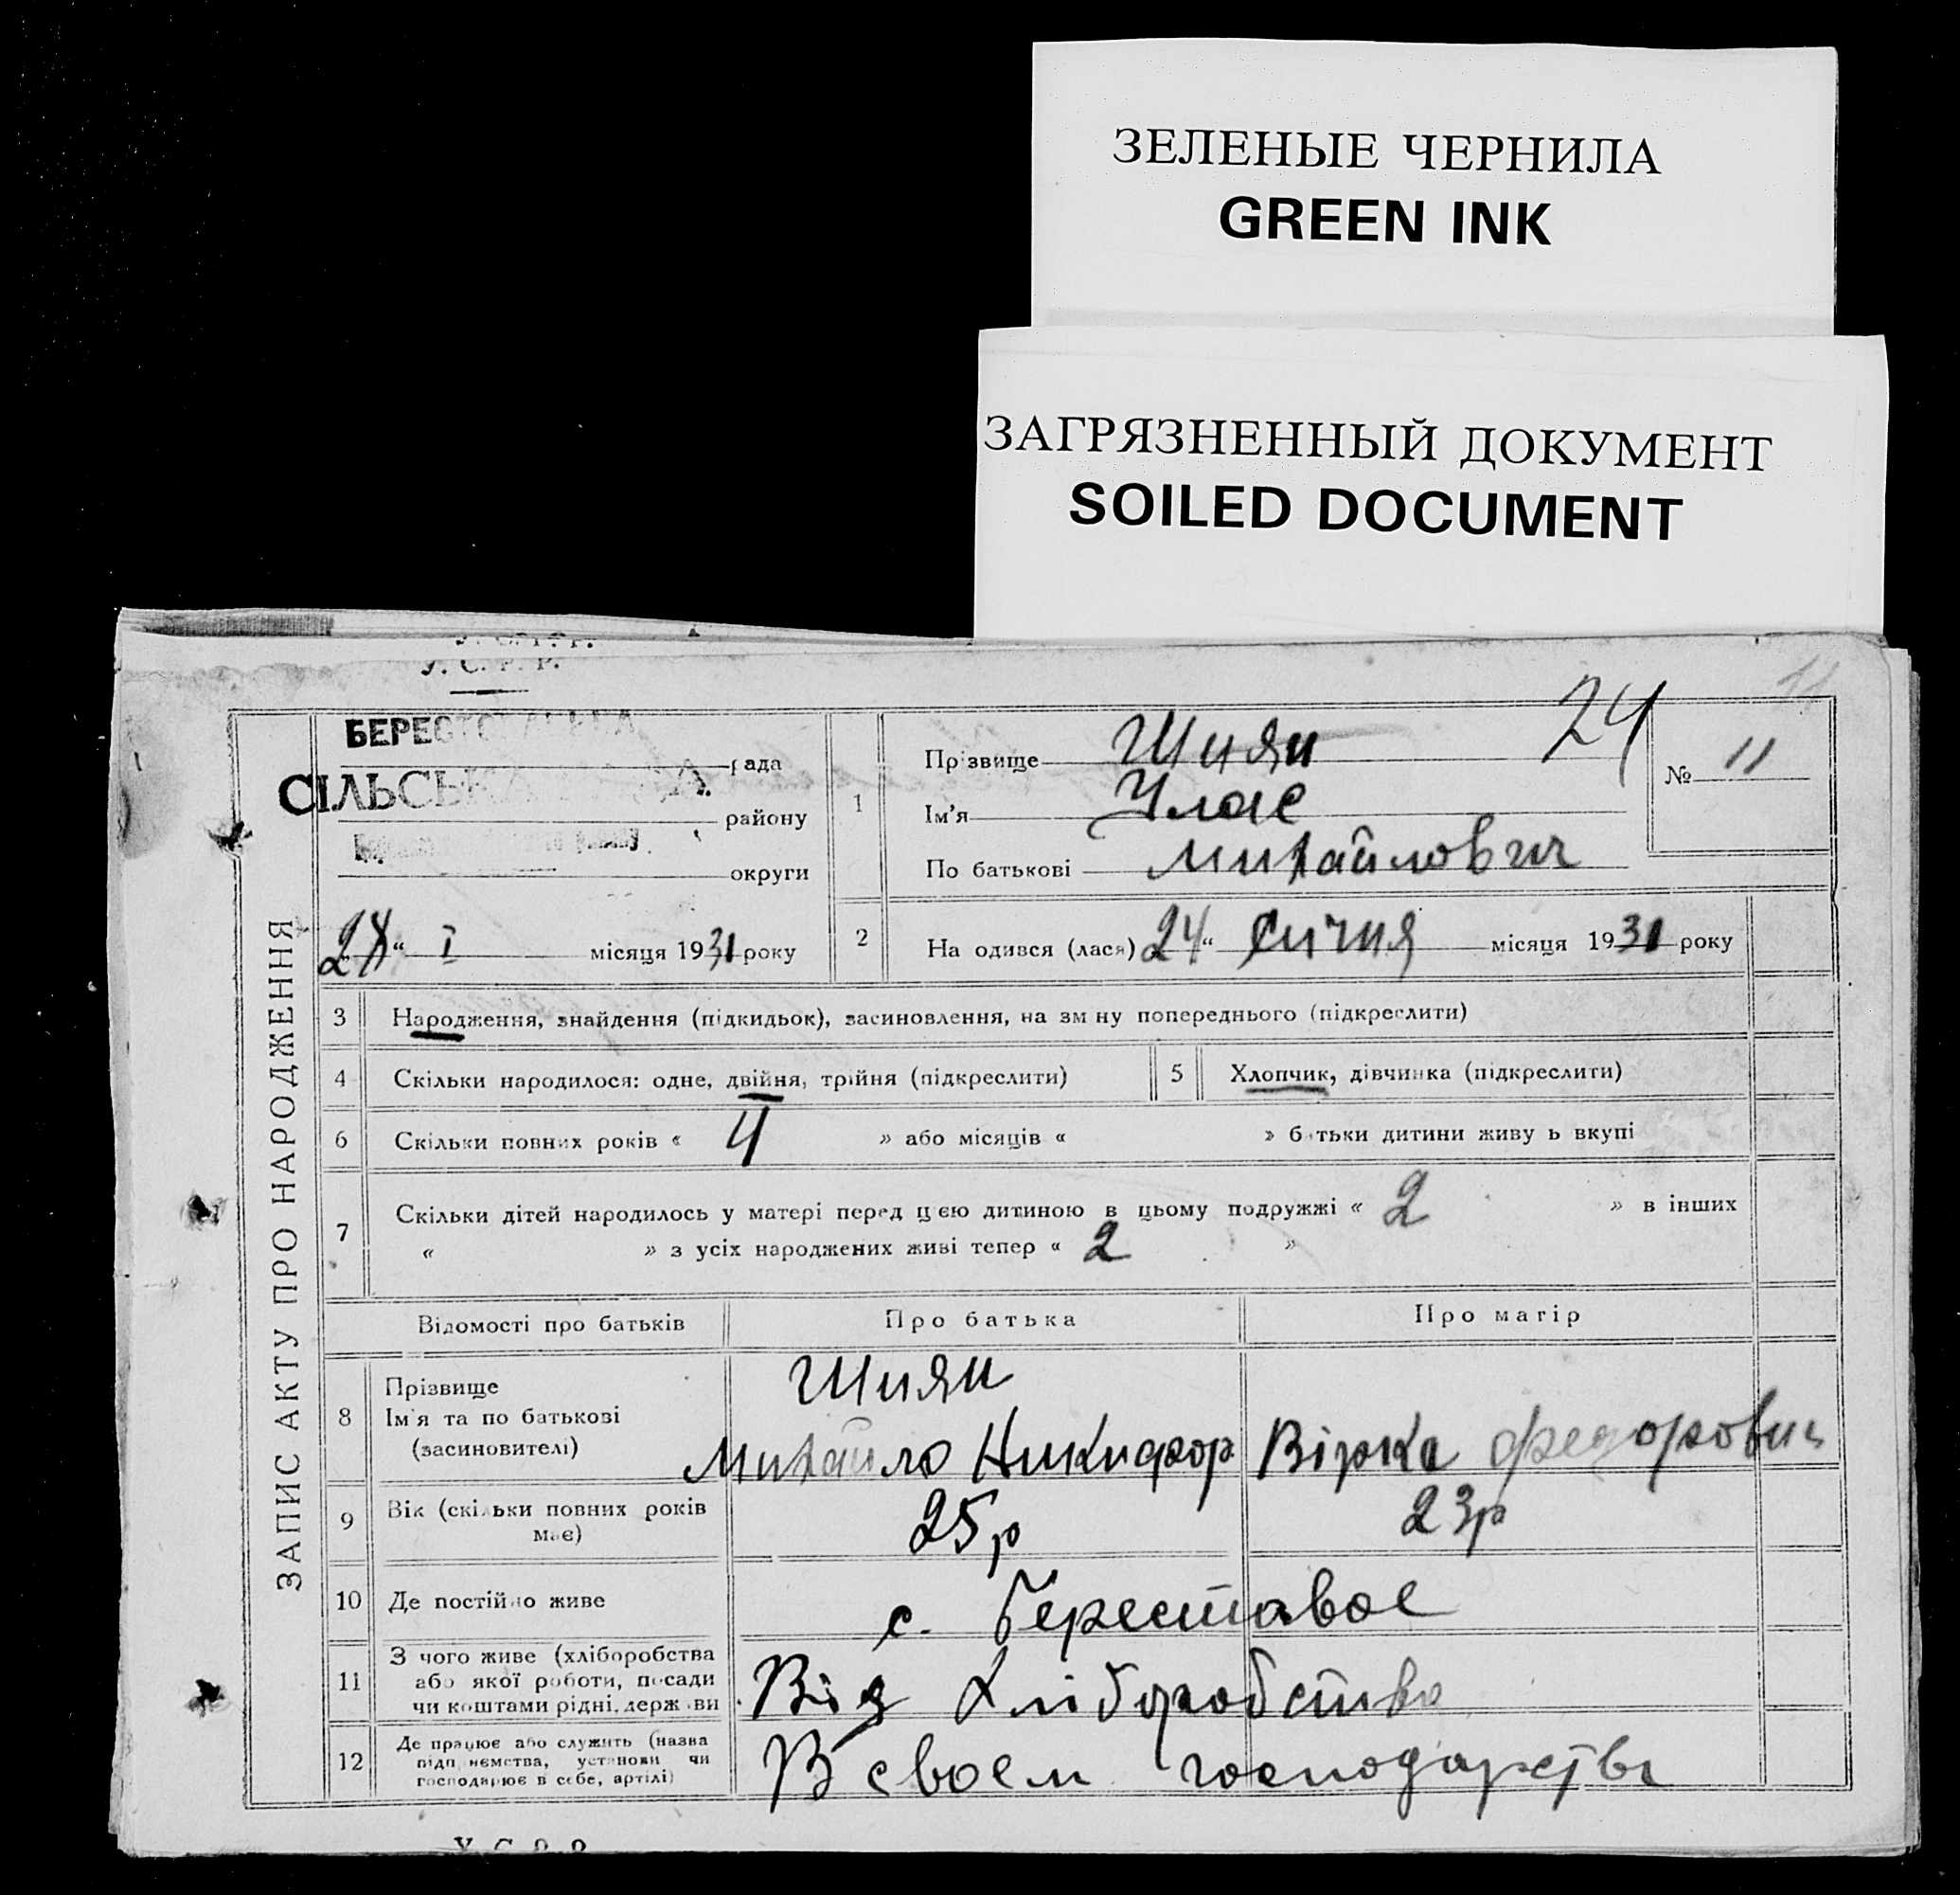 ЗЕЛЕНЫЕ ЧЕРНИЛА
GREEN INK
ЗАГРЯЗНЕННЫЙ ДОКУМЕНТ
SOILED DOCUMENT
У. С. Р. Р.
ЗАПИС АКТУ ПРО НАРОДЖЕННЯ
рада
району
округи
24 " I місяця 1931 року
24
1 Прізвище Шиян
Ім'я Улас
По батькові Михайлович
№ 11
2 На одився (лася) 24 " Січня місяця 1931 року
3 Народження, знайдення (підкидьок), засиновлення, на зм ну попереднього (підкреслити)
4 Скільки народилося: одне, двійня, трійня (підкреслити) 5 Хлопчик, дівчинка (підкреслити)
6 Скільки повних років « 4 » або місяців « » б тьки дитини живу ь вкупі
7 Скільки дітей народилось у матері перед цією дитиною в цьому подружжі « 2 » в інших
« » з усіх народжених живі тепер « 2 »
Відомості про батьків Про батька Про матір
8 Прізвище Шиян
Ім'я та по батькові
(засиновителі) Михайло Никифор Вірка Федоровн
9 Вік (скільки повних років має) 25 р 23 р
10 Де постійно живе с. Береставое
11 З чого живе (хліборобства
або якої роботи, посади
чи коштами рідні, держ ви Від Хліборобства
12 Де працює або служить (назва
підп иємства, установи чи
господарює в себе, артілі) В своем господарстві